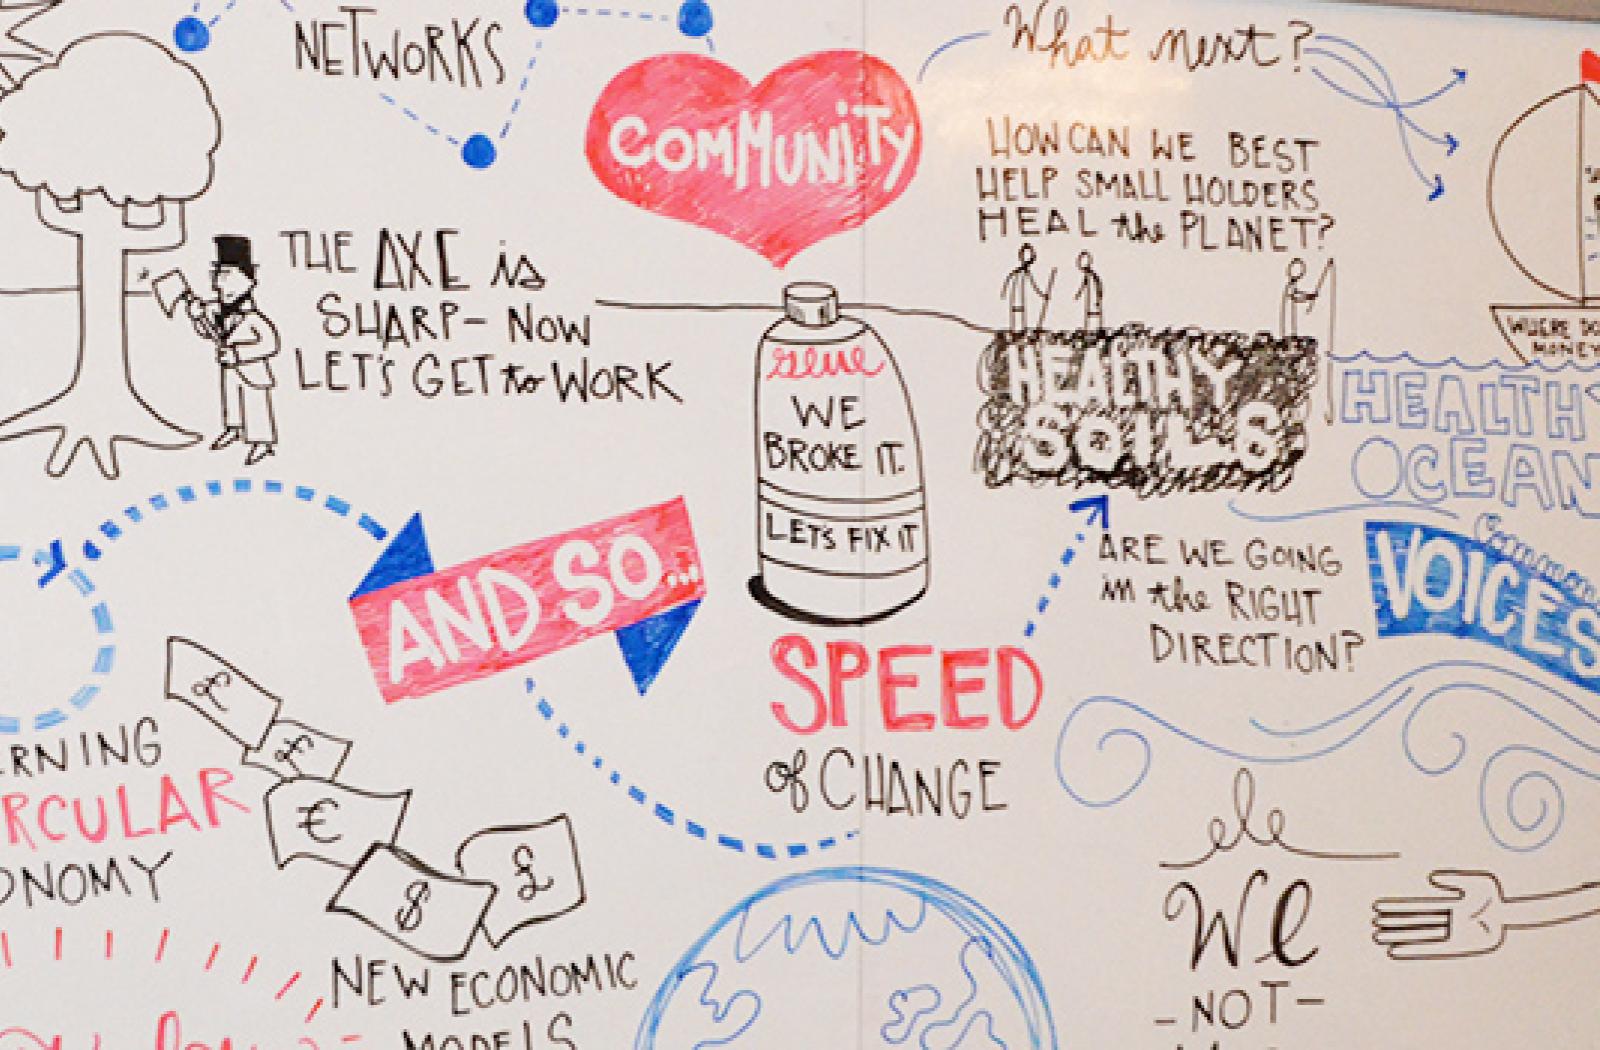 NETWORKS
COMMUNITY
What next?
HOW CAN WE BEST
HELP SMALL HOLDERS
HEAL the PLANET?
THE AXE is
SHARP- NOW
LET'S GET to WORK
glue
WE
BROKE IT.
LET'S FIX IT
HEALTHY
SOILS
WHERE DO
MONEY
HEALTHY
OCEAN
AND SO...
ARE WE GOING
in the RIGHT
DIRECTION?
VOICES
SPEED
of CHANGE
£
£
€
$
£
ERNING
RCULAR
ONOMY
NEW ECONOMIC
MODELS
We
-NOT-